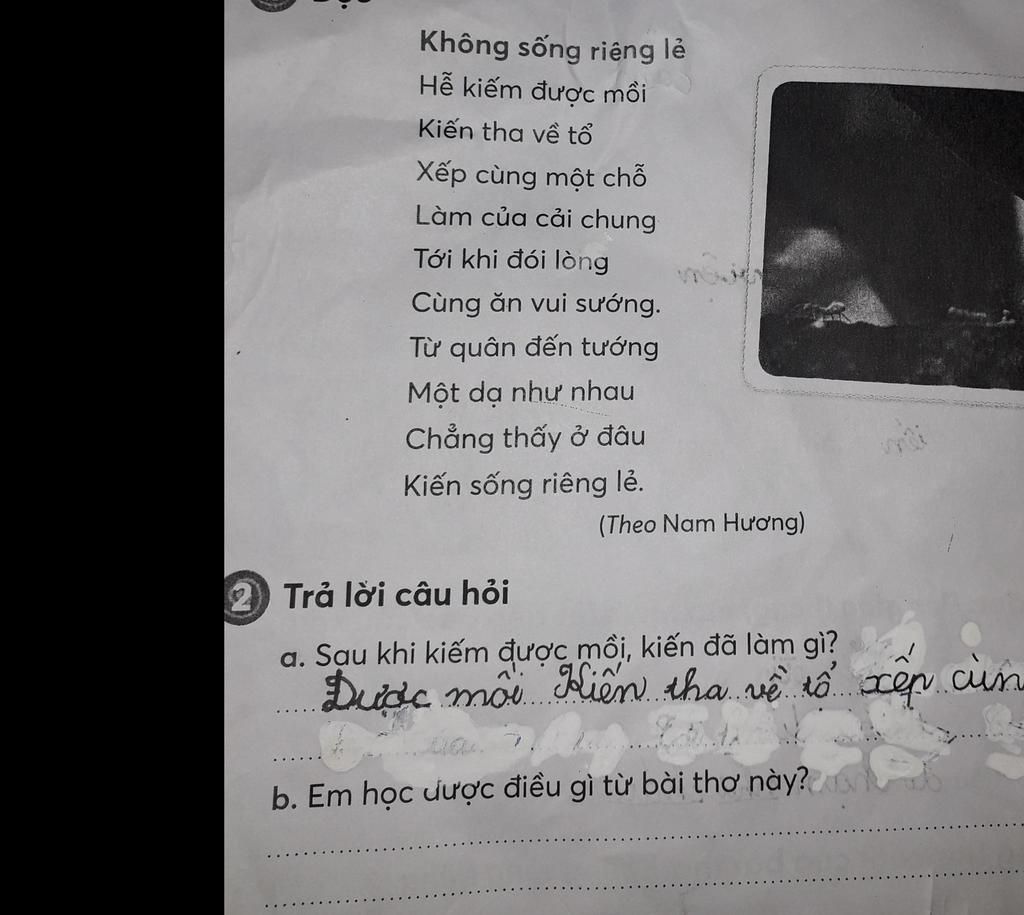 Không sống riêng lẻ
Hễ kiếm được mồi
Kiến tha về tổ
Xếp cùng một chỗ
Làm của cải chung
Tới khi đói lòng
Cùng ăn vui sướng.
Từ quân đến tướng
Một dạ như nhau
Chẳng thấy ở đâu
Kiến sống riêng lẻ.
(Theo Nam Hương)
2 Trả lời câu hỏi
a. Sau khi kiếm được mồi, kiến đã làm gì?
Được mồi Kiến tha về tổ xếp cùn
b. Em học được điều gì từ bài thơ này?